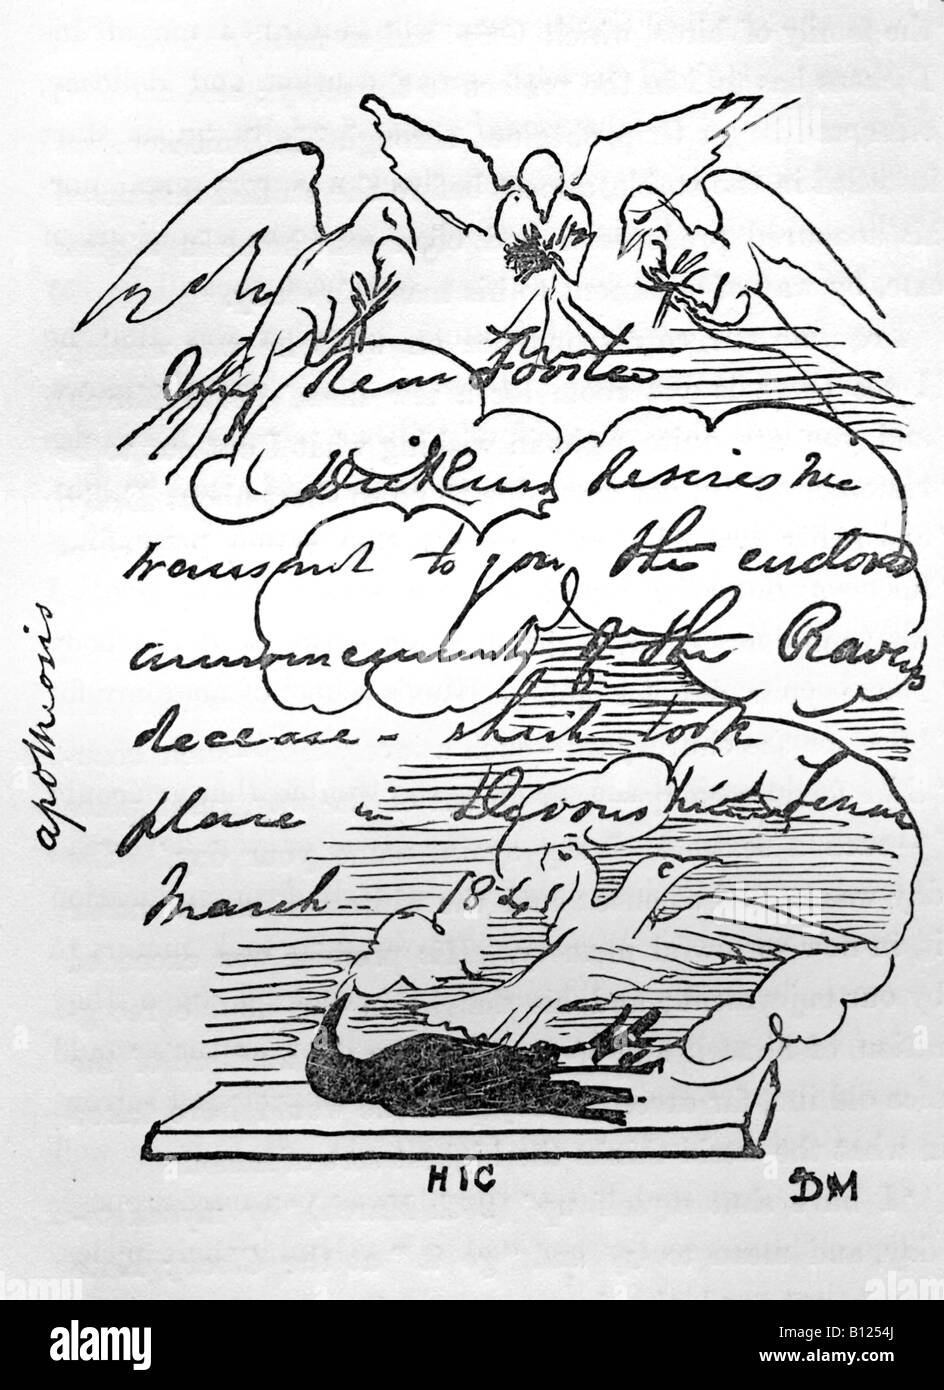 My dear Forster
Dickens desires me
transmit to you the enclosed
announcement of the Raven's
decease - which took
place in Devonshire Terrace
March 1841
apotheosis
HIC
DM
alamy
Image ID: B1254J
www.alamy.com